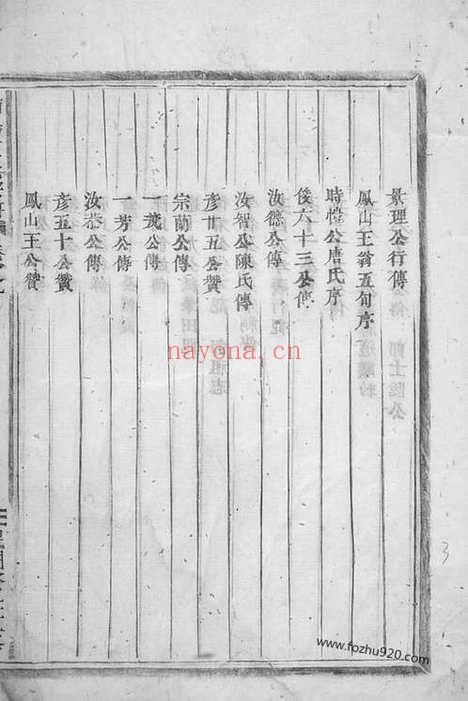 景理公行傳
鳳山王翁五旬序
時惶公唐氏序
俊六十三公傳
汝德公傳
汝智公陳氏傳
彥廿五公贊
宗蘭公傳
一茂公傳
一芳公傳
汝恭公傳
彥五十公贊
鳳山王公贊
nayona.cn
3
www.fozhu920.com